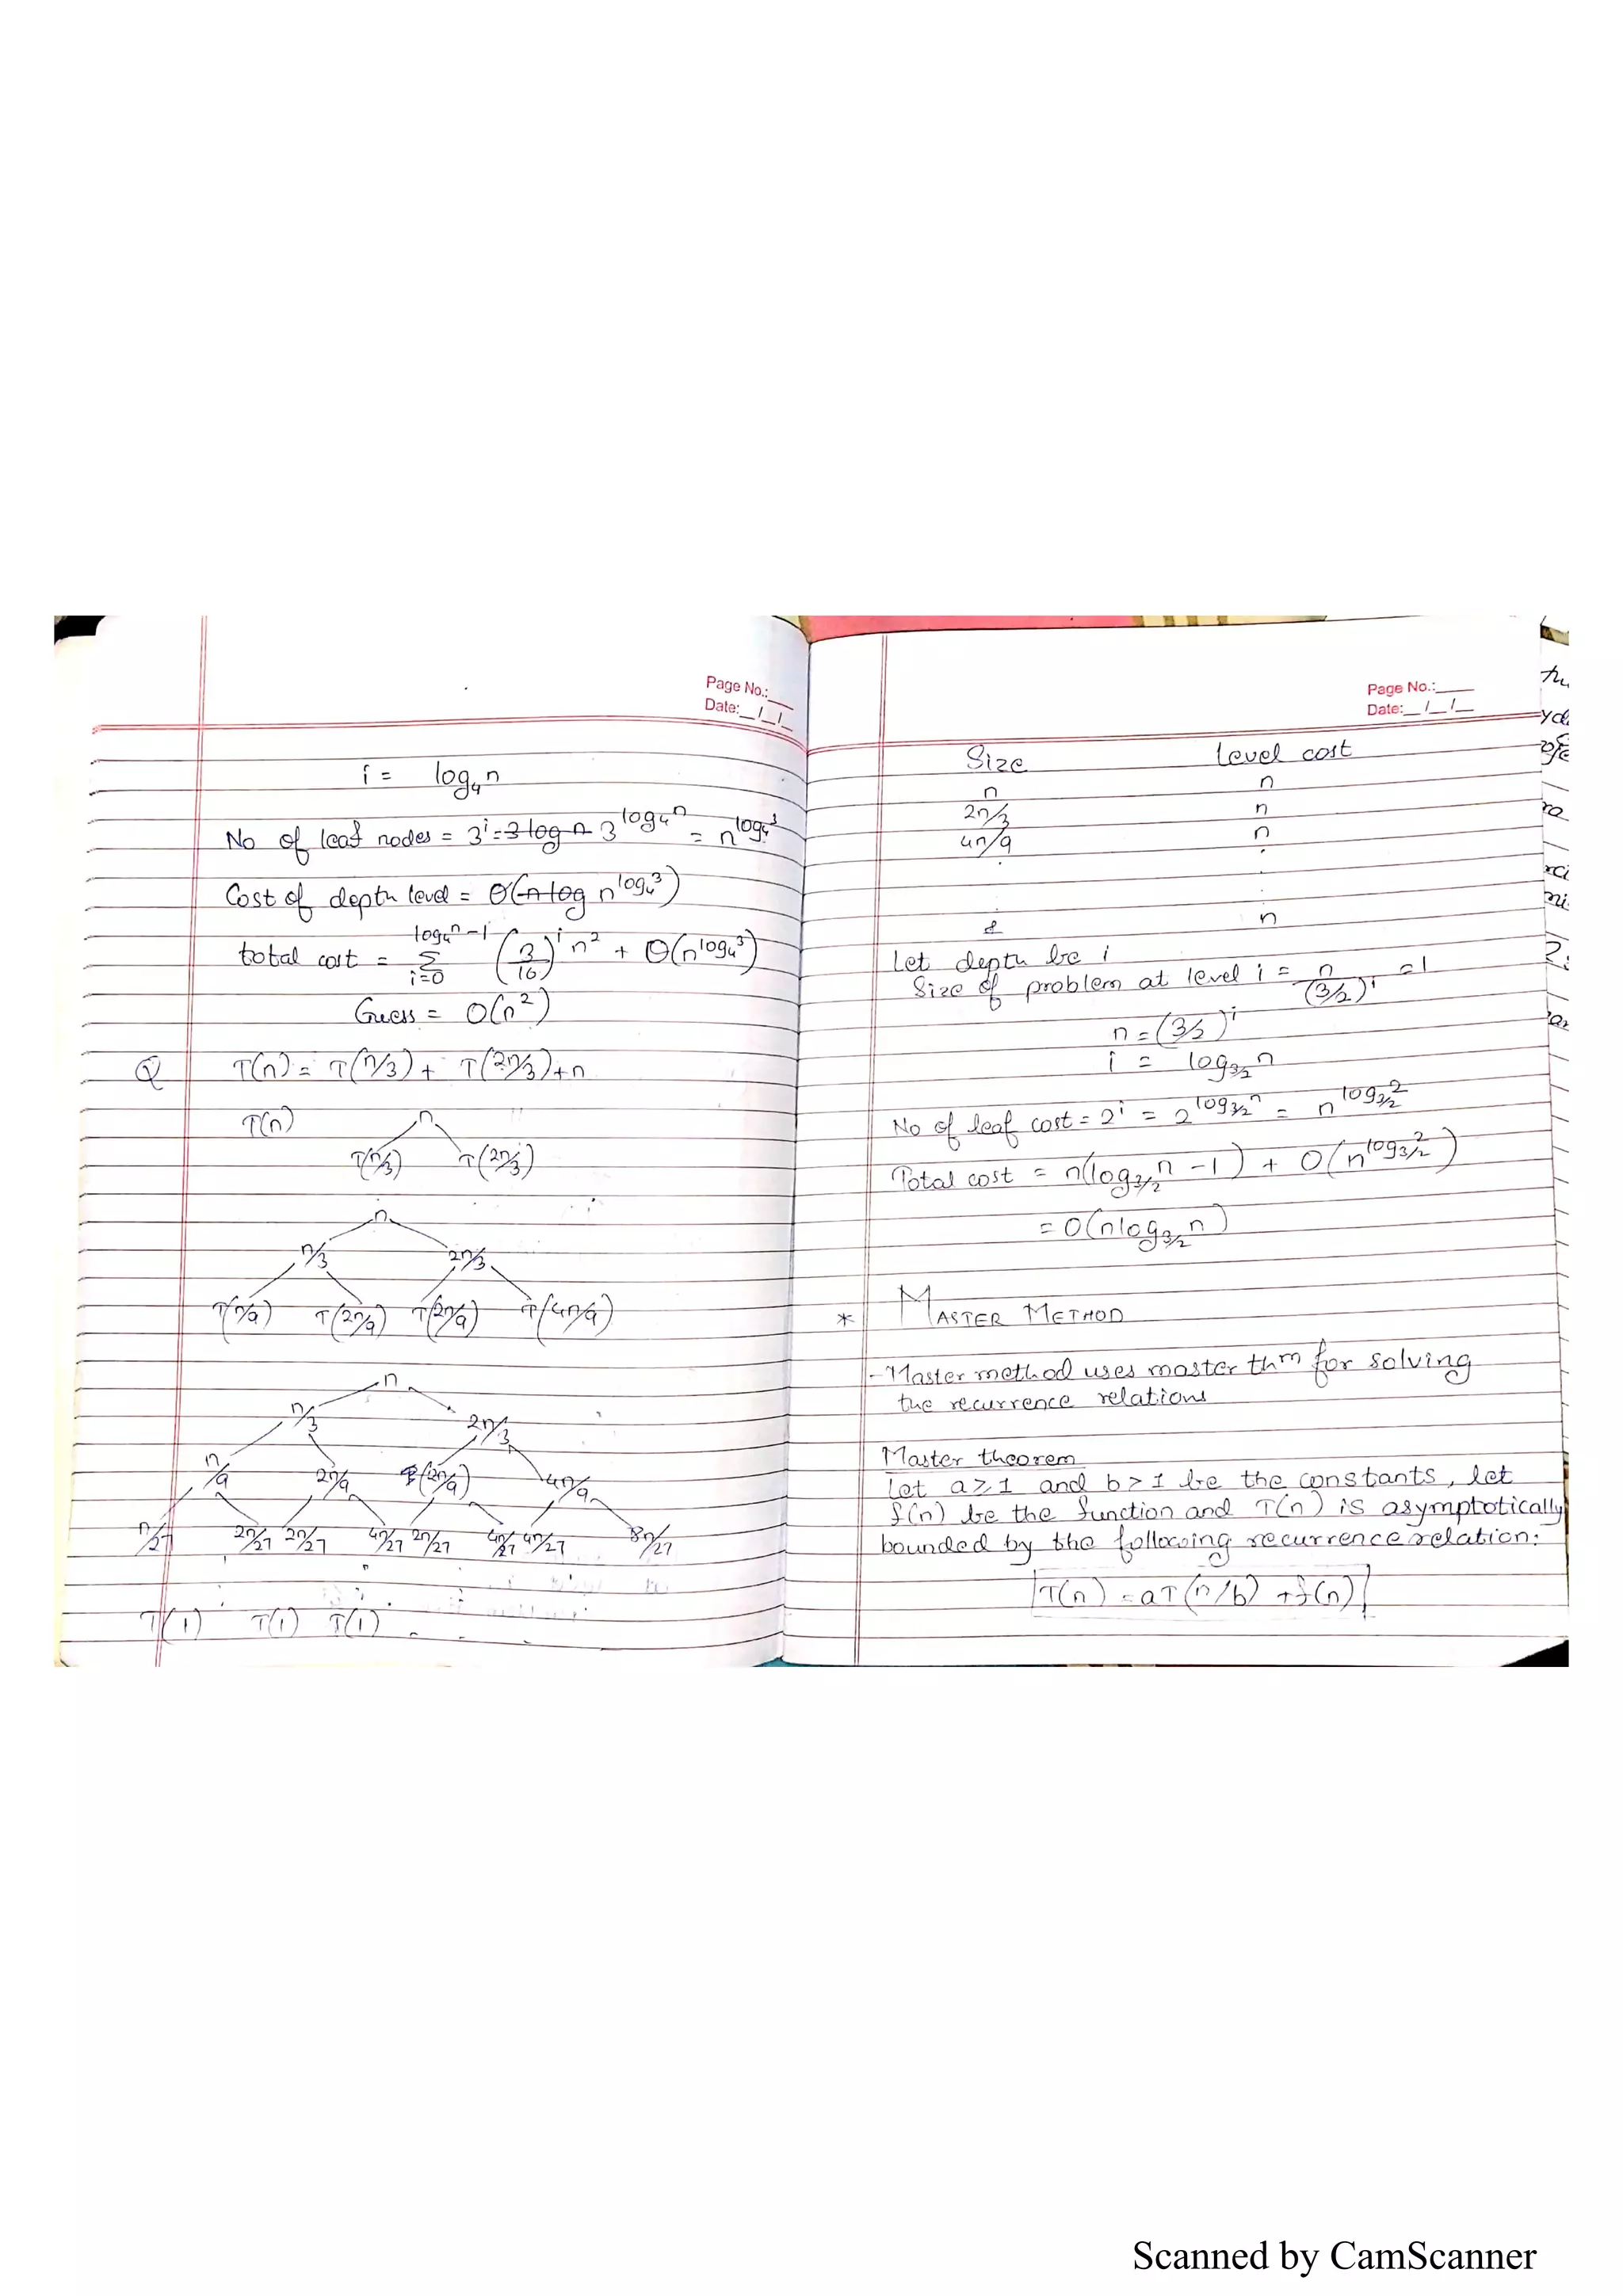 Page No.:
Date: / /
i = log₄n
No of leaf nodes = 3ⁱ = 3 log n 3^log₄n = n^log₄3
Cost of depth level = Θ(n log n^log₄3)
total cost = Σ_{i=0}^{log₄n - 1} (3/16)ⁱ n² + Θ(n^log₄3)
Guess = O(n²)
Q T(n) = T(n/3) + T(2n/3) + n
T(n) n
T(n/3) T(2n/3)
n
n/3 2n/3
T(n/9) T(2n/9) T(2n/9) T(4n/9)
n
n/3 2n/3
n/9 2n/9 (2n/9) 4n/9
n/27 2n/27 2n/27 4n/27 2n/27 4n/27 4n/27 8n/27
T(1) T(1) T(1) . . .
Page No.:
Date: / /
Size level cost
n n
2n/3 n
4n/9 n
n
Let depth be i
Size of problem at level i = n/(3/2)ⁱ = 1
n = (3/2)ⁱ
i = log_{3/2} n
No of leaf cost = 2ⁱ = 2^log_{3/2} n = n^log_{3/2} 2
Total cost = n(log_{3/2} n - 1) + O(n^log_{3/2} 2)
= O(n log_{3/2} n)
* MASTER METHOD
- Master method uses master thm for solving
the recurrence relations
Master theorem
Let a ≥ 1 and b > 1 be the constants, let
f(n) be the function and T(n) is asymptotically
bounded by the following recurrence relation:
T(n) = aT(n/b) + f(n)
Scanned by CamScanner